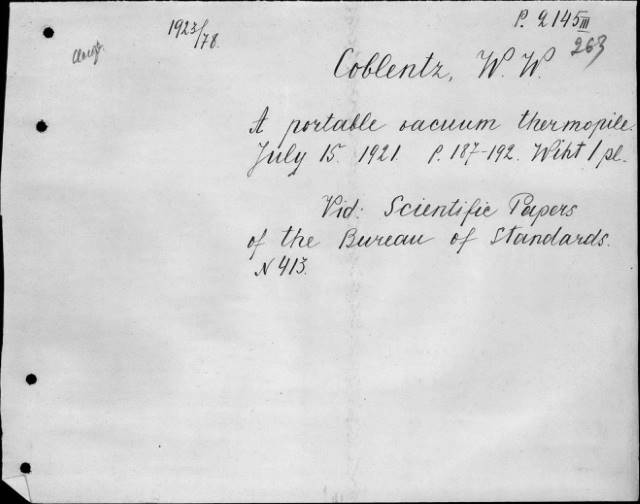 P. 2145 III
1923/78.
263
Coblentz, W. W.
A portable vacuum thermopile.
July 15. 1921. P. 187-192. Wiht 1 pl.
Vid: Scientific Papers
of the Bureau of Standards.
N 413.